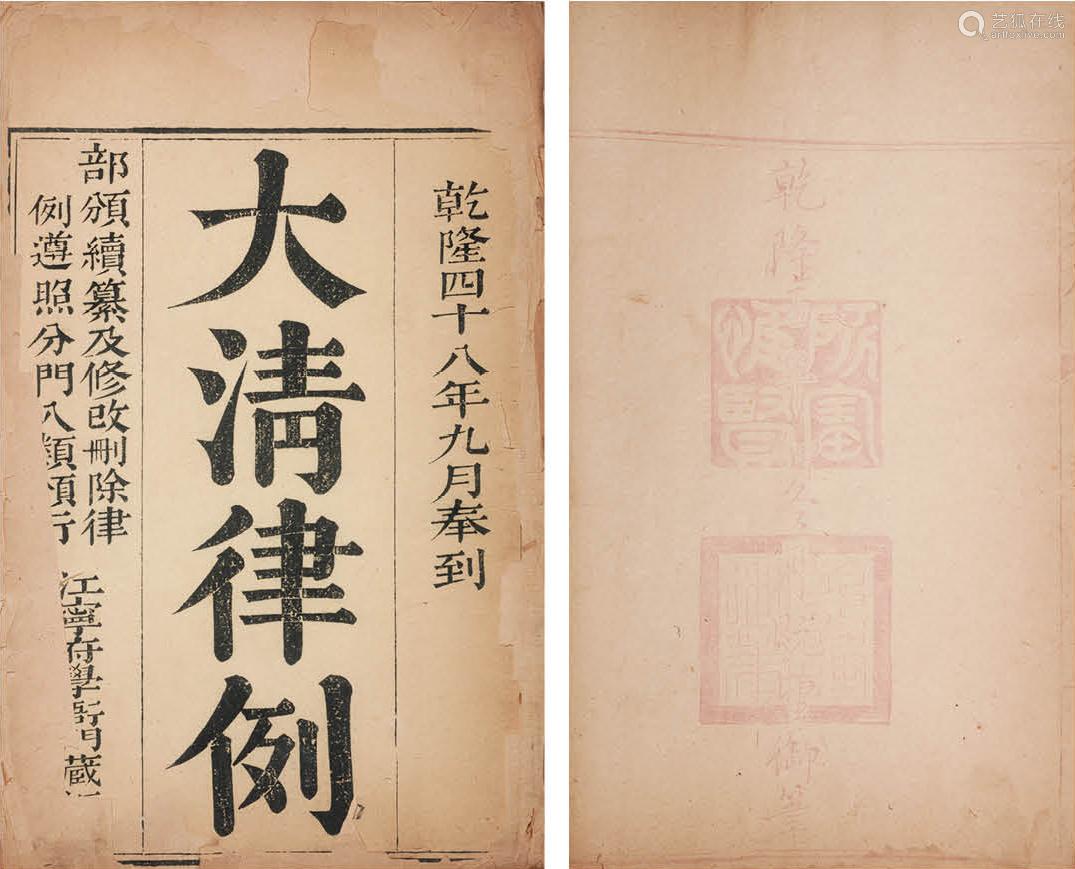 乾隆四十八年九月奉到
大清律例
部頒續纂及修改刪除律
例遵照分門入類頒行
江寧府學
藏
艺狐在线
artfoxlive.com
乾隆
御筆